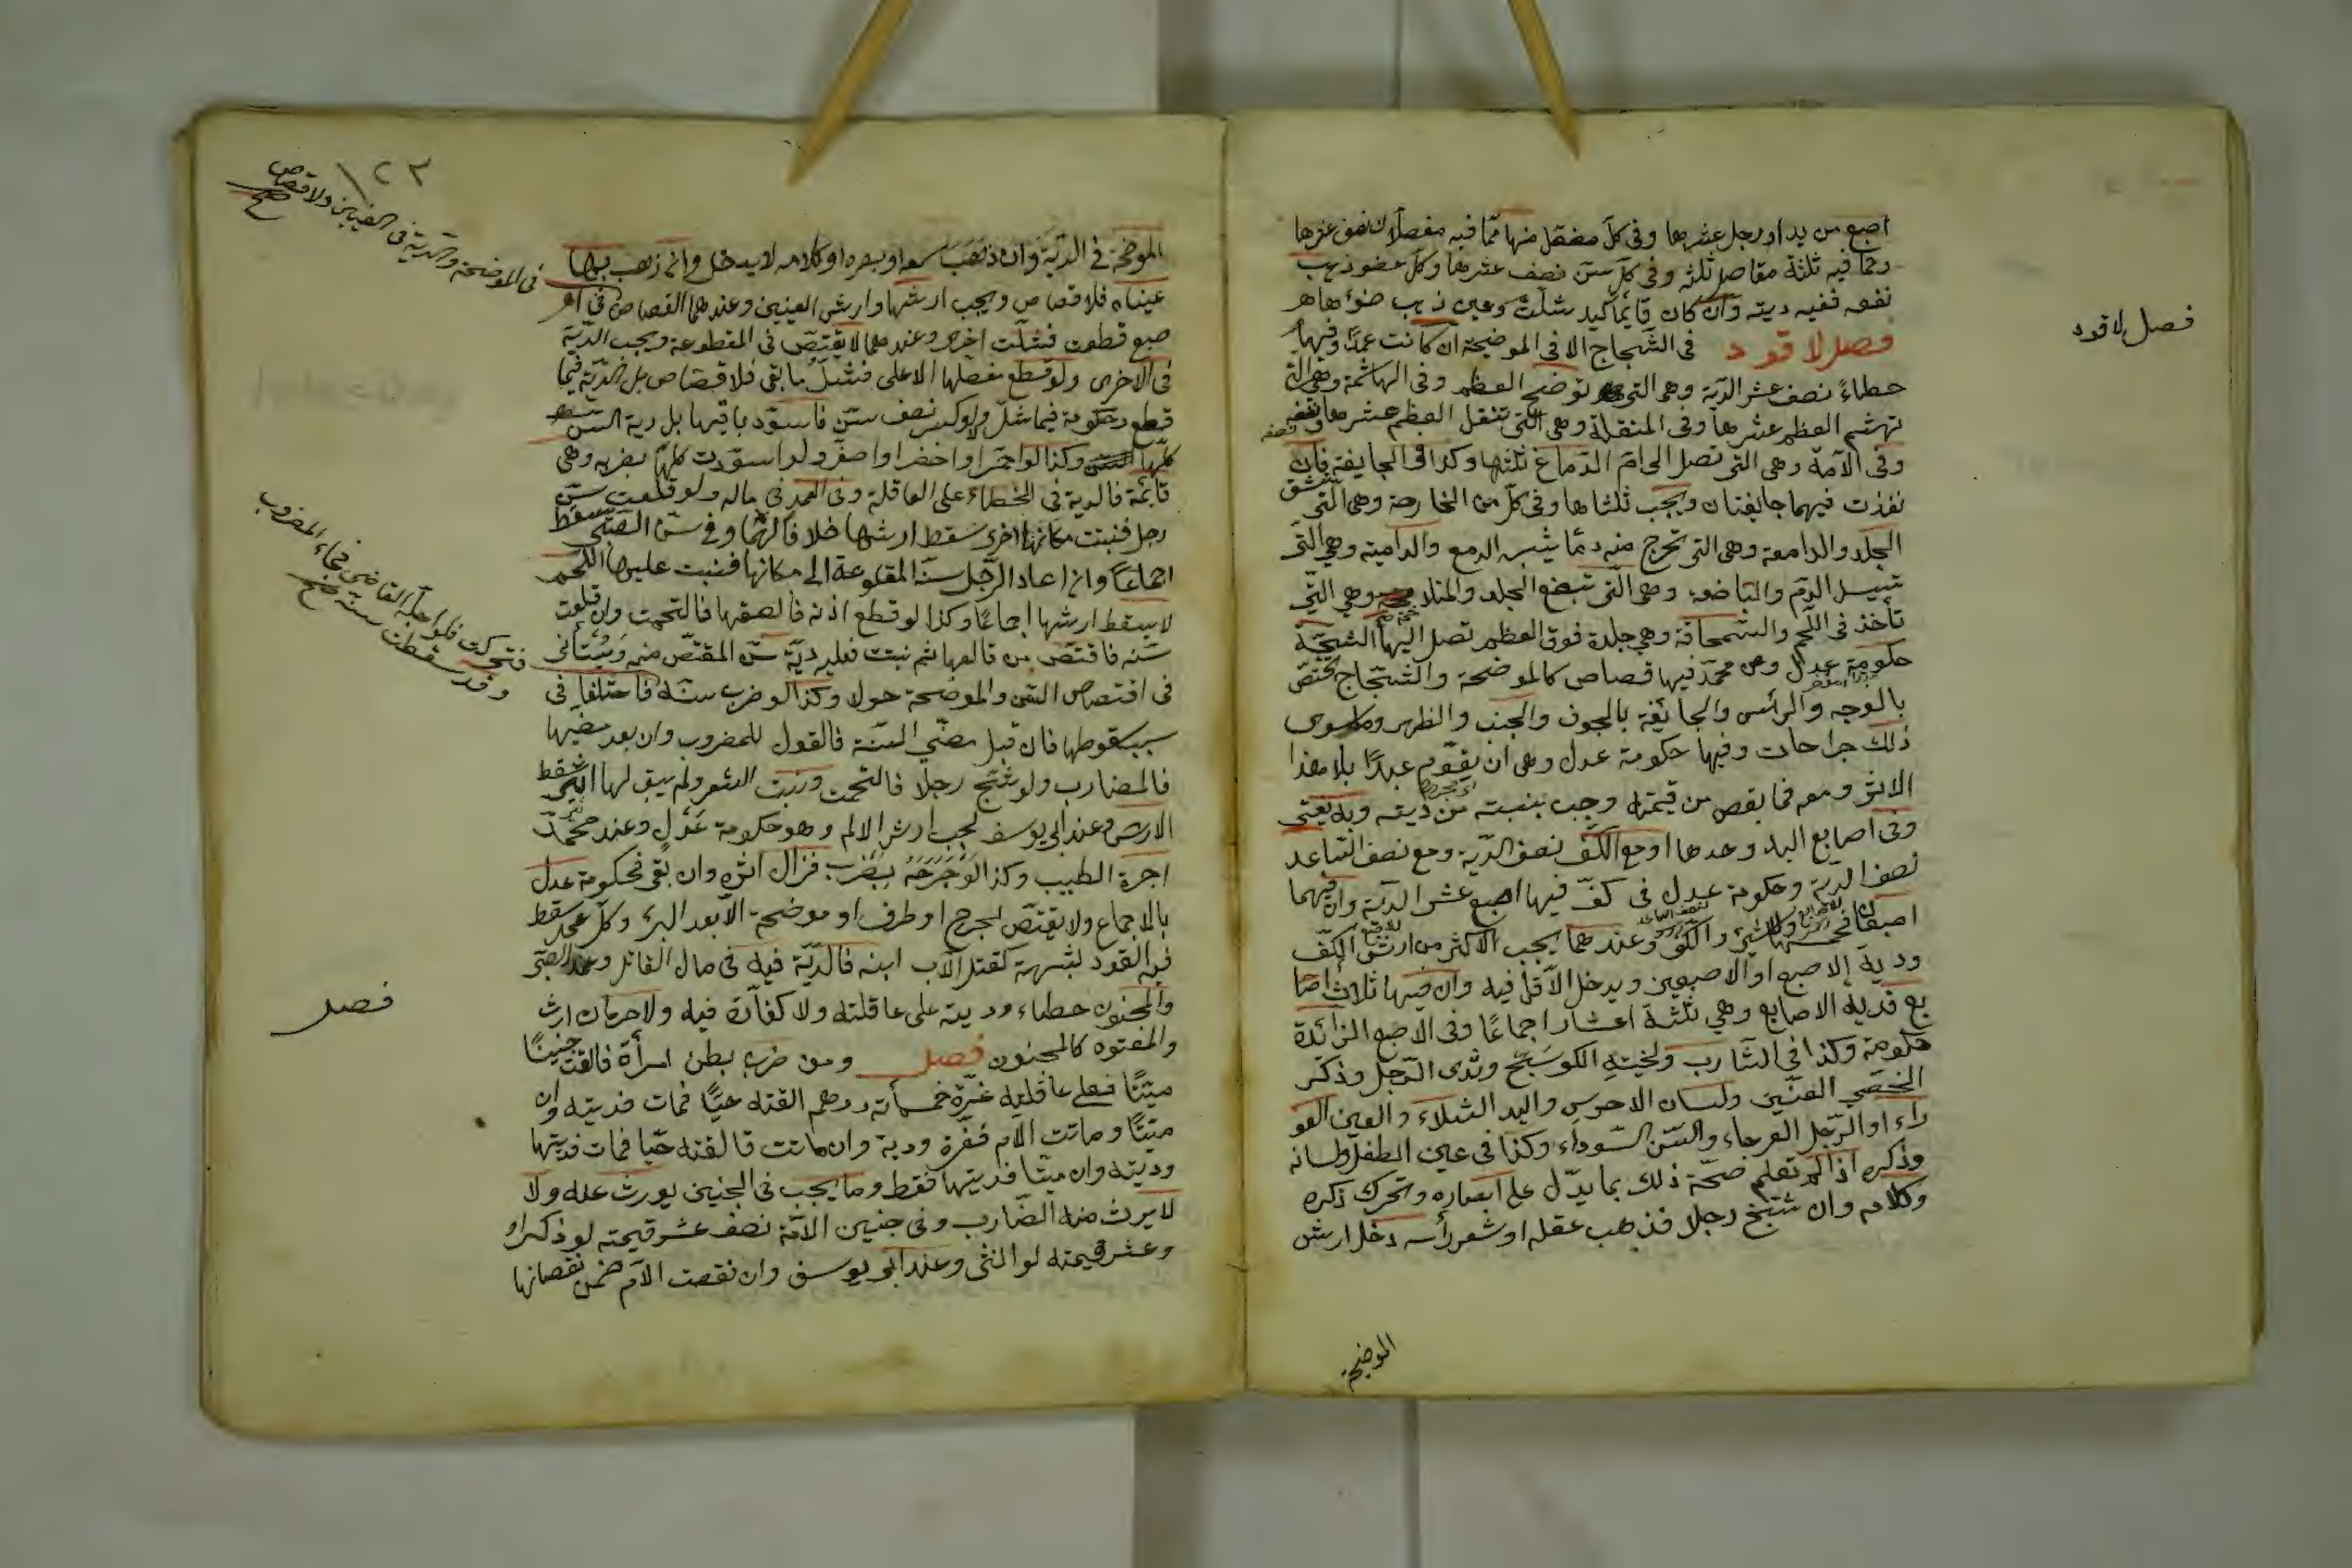 اصبع من يد او رجل عشرها وفى كل مفصل منها مما فيه مفصلان نصف عشرها
ومما فيه ثلثة مفاصل ثلثه وفى كل سن نصف عشرها وكل عضو ذهب
نفعه ففيه ديته وان كان قايما كيد شلت وعين ذهب ضوءها
فصل لا قود فى الشجاج الا فى الموضحة ان كانت عمدا وفيها
خطاء نصف عشر الدية وهى التى توضح العظم وفى الهاشمة وهى التى
تهشم العظم عشرها وفى المنقلة وهى التى تنقل العظم عشرها ونصفه
وفى الآمة وهى التى تصل الى ام الدماغ ثلثها وكذا فى الجايفة فان
نفذت فيهما جايفتان ويجب ثلثاها وفى كل من الخارصة وهى التى تشق
الجلد والدامعة وهى التى تخرج منه دما يشبه الدمع والدامية وهى التى
تسيل الدم والباضعة وهى التى تبضع الجلد والمتلاحمة وهى التى
تأخذ فى اللحم والسمحاقة وهى جلدة فوق العظم تصل اليها الشجة
حكومة عدل وعن محمد فيها قصاص كالموضحة والشجاج يختص
بالوجه والرأس والجائفة بالجوف والجنب والظهر وما سوى
ذلك جراحات وفيها حكومة عدل وهى ان يقوم عبدا بلا هذا
الاثر ومعه فما نقص من قيمته وجب بنسبته من ديته وبه يفتى
وفى اصابع اليد وحدها او مع الكف نصف الدية ومع نصف الساعد
نصف الدية وحكومة عدل وفى كف فيها اصبع عشر الدية وان فيهما
اصبعان فخمسها ولا شئ فى الكف وعندهما يجب الاكثر من ارش الكف
ودية الاصبع او الاصبعين ويدخل الاقل فيه وان فيها ثلاث اصا
بع فدية الاصابع وهى ثلثة اعشار اجماعا وفى الاصبع الزائدة
حكومة وكذا فى الشارب ولحية الكوسج وثدى الرجل وذكر
الخصى العنين ولسان الاخرس واليد الشلاء والعين العو
راء او الرجل العرجاء والسن السوداء وكذا فى عين الطفل ولسانه
وذكره اذا لم تعلم صحة ذلك بما يدل على ابصاره وتحرك ذكره
وكلامه وان شج رجلا فذهب عقله او شعر رأسه دخل ارش
الموضحة
فصل لا قود
١٢٣
الموضحة فى الدية وان ذهب سمعه او بصره او كلامه لا يدخل وان ذهب بها
عيناه فلا قصاص ويجب ارشها وارش العينين وعندهما القصاص
فى الموضحة والدية فى العينين ولا قصاص صح
صبع قطعت فشلت اخرى وعندهما لا يقتص فى المقطوعة ويجب الدية
فى الاخرى ولو قطع مفصلها الاعلى فشل ما بقى فلا قصاص بل الدية فيما
قطع وحكومة فيما شل ولو كسر نصف سن فاسود باقيها بل دية السن
كلها وكذا لو احمر او اخضر او اصفر ولو اسودت كلها بضربه وهى
قائمة فالدية فى الخطاء على العاقلة وفى العمد فى ماله ولو قلعت سن
رجل فنبتت مكانها اخرى سقط ارشها خلافا لهما وفى سن الصبى يسقط
اجماعا وان اعاد الرجل سنه المقلوعة الى مكانها فنبت عليها اللحم
لا يسقط ارشها اجماعا وكذا لو قطع اذنه فالصقها فالتحمت وان قلعت
سنه فاقتص من قالعها ثم نبت فعليه دية سن المقتص منه ويستأنى
فى اقتصاص السن والموضحة حولا وكذا لو ضرب سنه
فتحركت فلو اجله القاضى فجاء المضروب
وقد سقطت سنه صح
فاختلفا فى
سبب سقوطها فان قبل مضى السنة فالقول للمضروب وان بعد مضيها
فالمضارب ولو شج رجلا فالتحمت ونبت الشعر ولم يبق لها اثر سقط
الارش وعند ابى يوسف يجب ارش الالم وهو حكومة عدل وعند محمد
اجرة الطبيب وكذا لو جرحه بضرب فزال اثره وان بقى فحكومة عدل
بالاجماع ولا يقتص لجرح او طرف او موضحة الا بعد البرء وكل عمد سقط
فيه القود لشبهة كقتل الاب ابنه فالدية فيه فى مال القاتل وعمد الصبى
والمجنون خطاء وديته على عاقلته ولا كفارة فيه ولا حرمان ارث
والمعتوه كالمجنون فصل ومن ضرب بطن امرأة فالقت جنينا
ميتا فعلى عاقلته غرة خمسمأته درهم القته حيا فمات فديته وان
ميتا وماتت الام فغرة ودية وان ماتت فالقته حيا فمات فديتها
وديته وان ميتا فديتها فقط وما يجب فى الجنين يورث عنه ولا
لا يرث منه الضارب وفى جنين الامة نصف عشر قيمته لو ذكرا و
وعشر قيمته لو انثى وعند ابى يوسف وان نقصت الام ضمن نقصانها
فصل